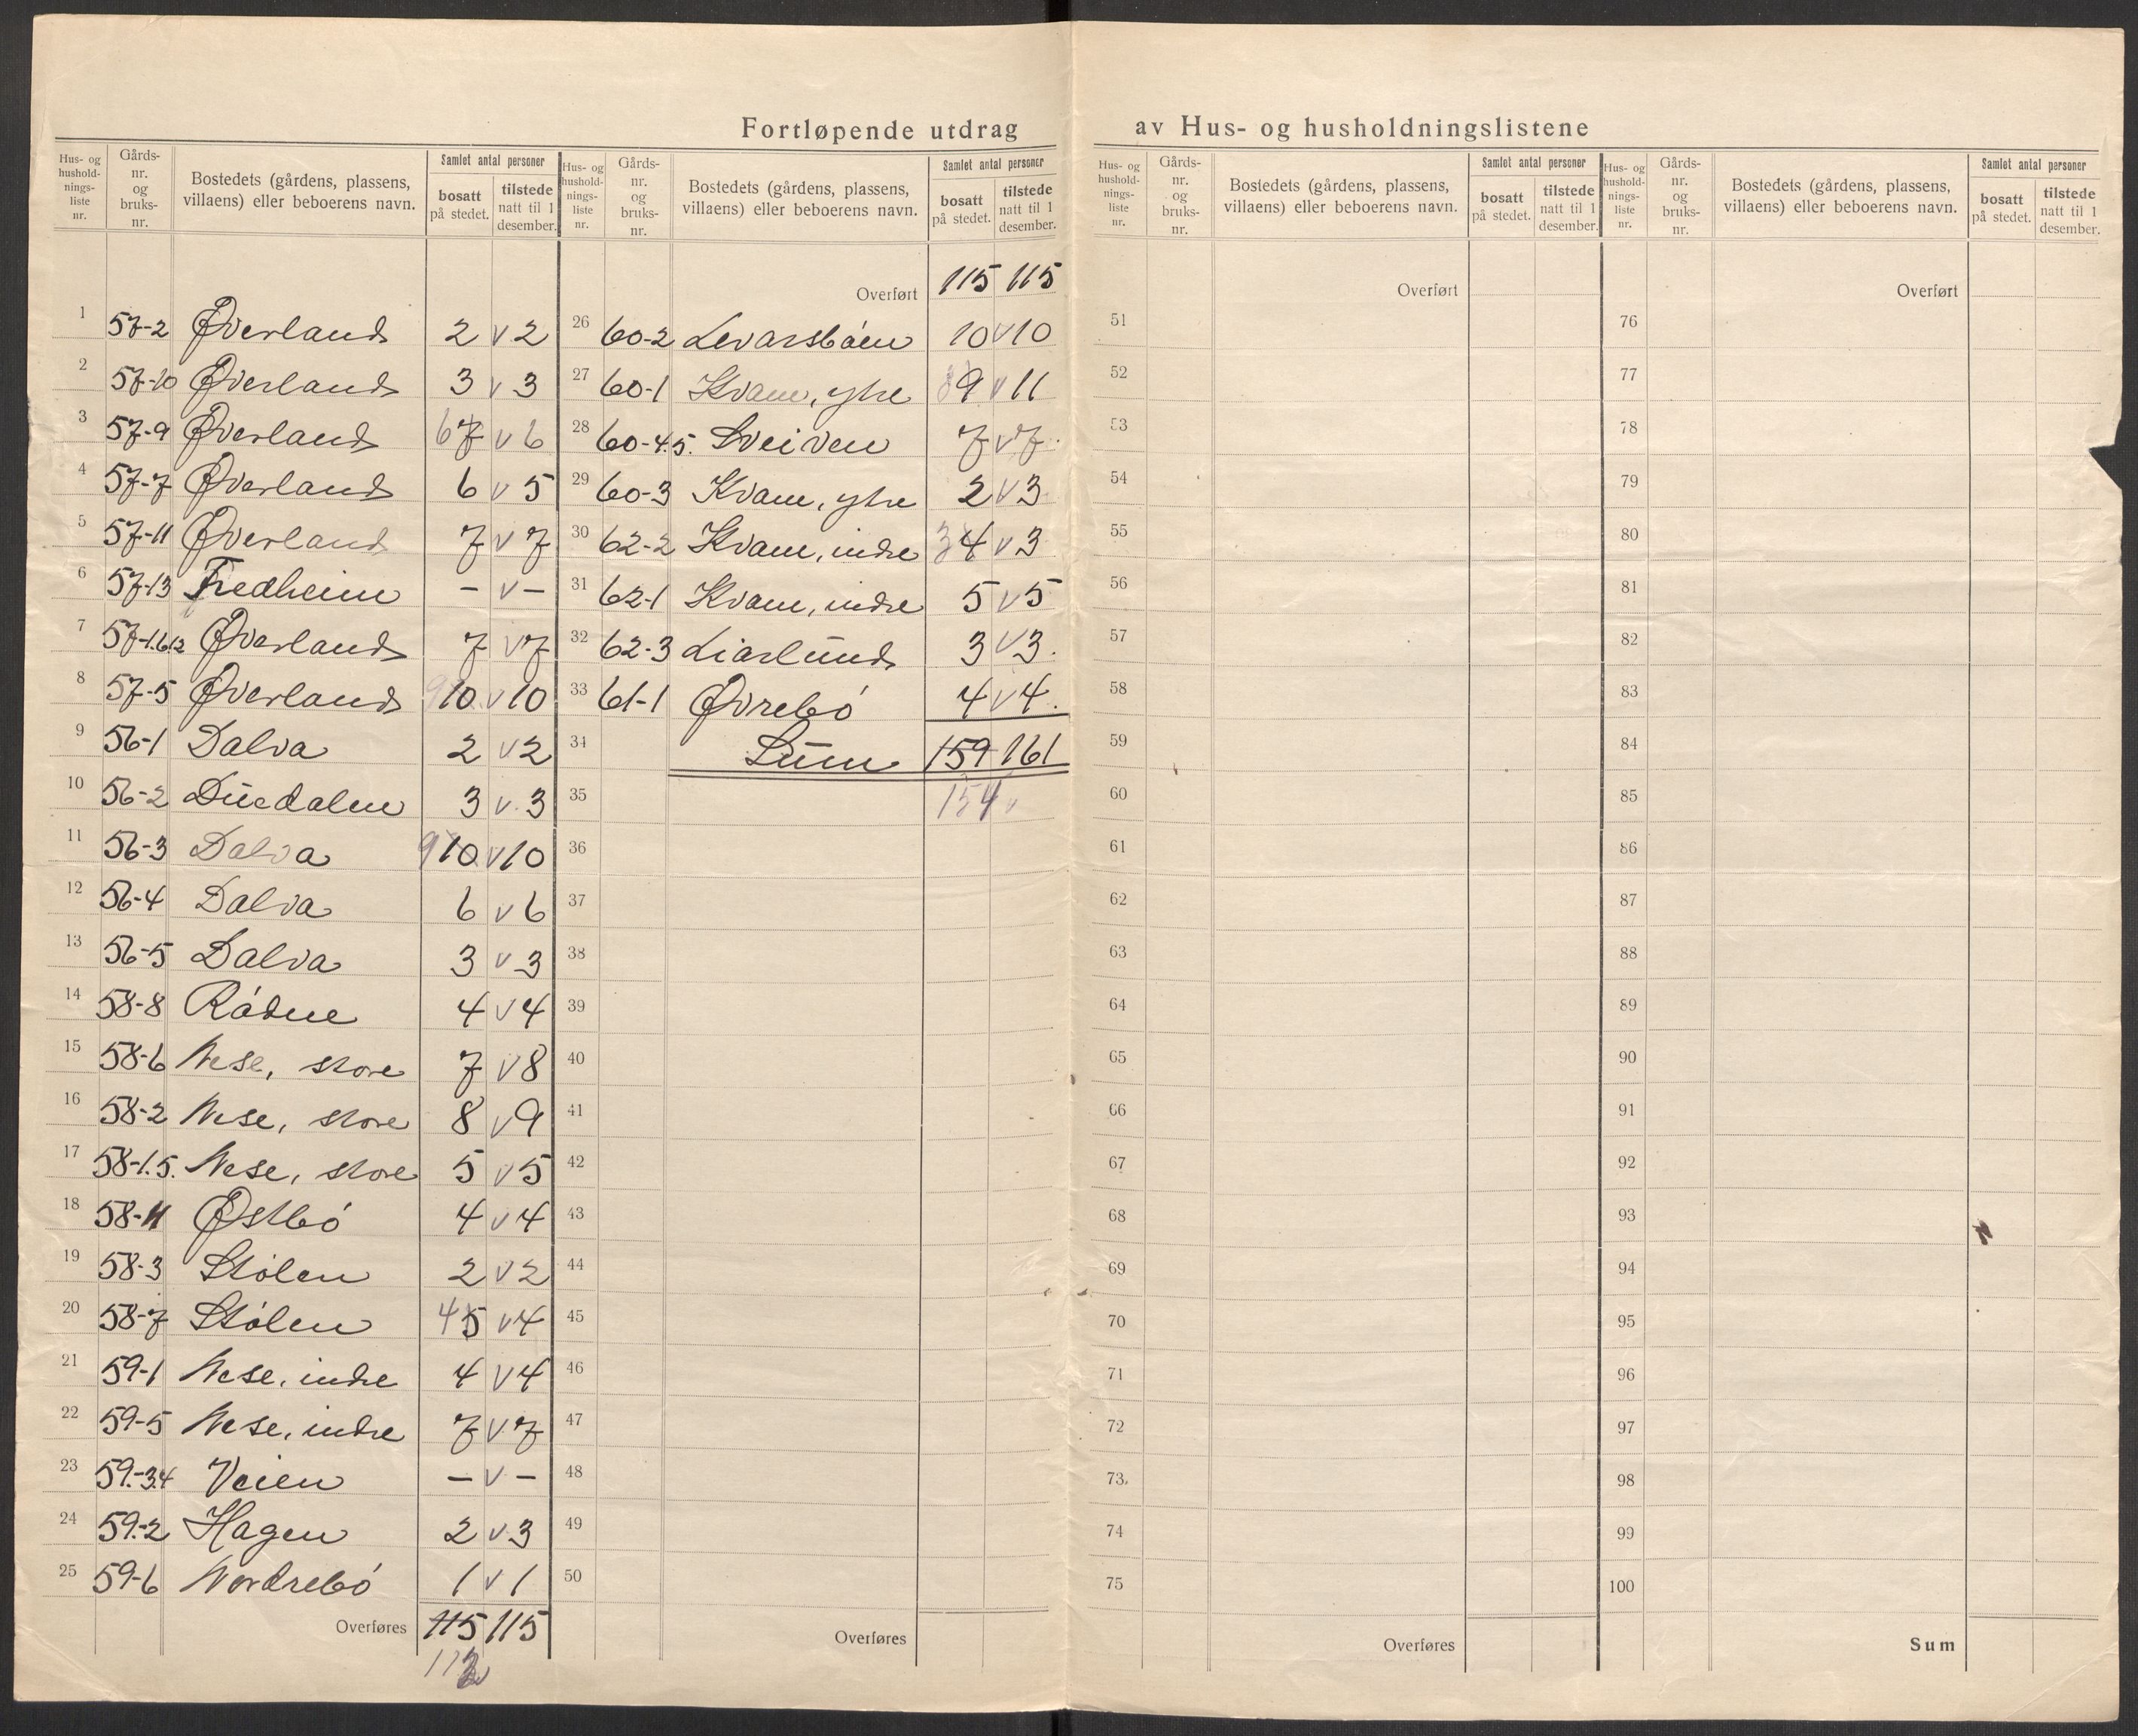 Fortløpende utdrag av Hus- og husholdningslistene
Hus- og hushold-nings-liste nr. Gårds-nr. og bruks-nr. Bostedets (gårdens, plassens, villaens) eller beboerens navn. Samlet antal personer bosatt på stedet. tilstede natt til 1 desember.
1 57-2 Øverland 2 v 2
2 57-10 Øverland 3 v 3
3 57-9 Øverland 6 7 v 6
4 57-7 Øverland 6 v 5
5 57-11 Øverland 7 v 7
6 57-13 Fredheim - v -
7 57-1.6.12 Øverland 7 v 7
8 57-5 Øverland 9 10 v 10
9 56-1 Dalva 2 v 2
10 56-2 Duedalen 3 v 3
11 56-3 Dalva 9 10 v 10
12 56-4 Dalva 6 v 6
13 56-5 Dalva 3 v 3
14 58-8 Rådne 4 v 4
15 58-6 Nese, store 7 v 8
16 58-2 Nese, store 8 v 9
17 58-1.5. Nese, store 5 v 5
18 58-11 Østbö 4 v 4
19 58-3 Stølen 2 v 2
20 58-7 Stølen 4 5 v 4
21 59-1 Nese, indre 4 v 4
22 59-5 Nese, indre 7 v 7
23 59.-3.4 Veien - v -
24 59.-2 Hagen 2 v 3
25 59-6 Nordrebö 1 v 1
Overføres 115 115
Hus- og hushold-nings-liste nr. Gårds-nr. og bruks-nr. Bostedets (gårdens, plassens, villaens) eller beboerens navn. Samlet antal personer bosatt på stedet. tilstede natt til 1 desember.
Overført 115 115
26 60-2 Levarsbåen 10 v 10
27 60-1 Kvam, ytre 8 9 v 11
28 60-4.5. Sveiven 7 v 7
29 60-3 Kvam, ytre 2 v 3
30 62-2 Kvam, indre 3 4 v 3
31 62-1 Kvam, indre 5 v 5
32 62-3 Liarlund 3 v 3.
33 61-1 Øvrebö 4 v 4.
34 Sum 159 161
35 154 v
36
37
38
39
40
41
42
43
44
45
46
47
48
49
50
Overføres
Hus- og hushold-nings-liste nr. Gårds-nr. og bruks-nr. Bostedets (gårdens, plassens, villaens) eller beboerens navn. Samlet antal personer bosatt på stedet. tilstede natt til 1 desember.
Overført
51
52
53
54
55
56
57
58
59
60
61
62
63
64
65
66
67
68
69
70
71
72
73
74
75
Overføres
Hus- og hushold-nings-liste nr. Gårds-nr. og bruks-nr. Bostedets (gårdens, plassens, villaens) eller beboerens navn. Samlet antal personer bosatt på stedet. tilstede natt til 1 desember.
Overført
76
77
78
79
80
81
82
83
84
85
86
87
88
89
90
91
92
93
94
95
96
97
98
99
100
Sum